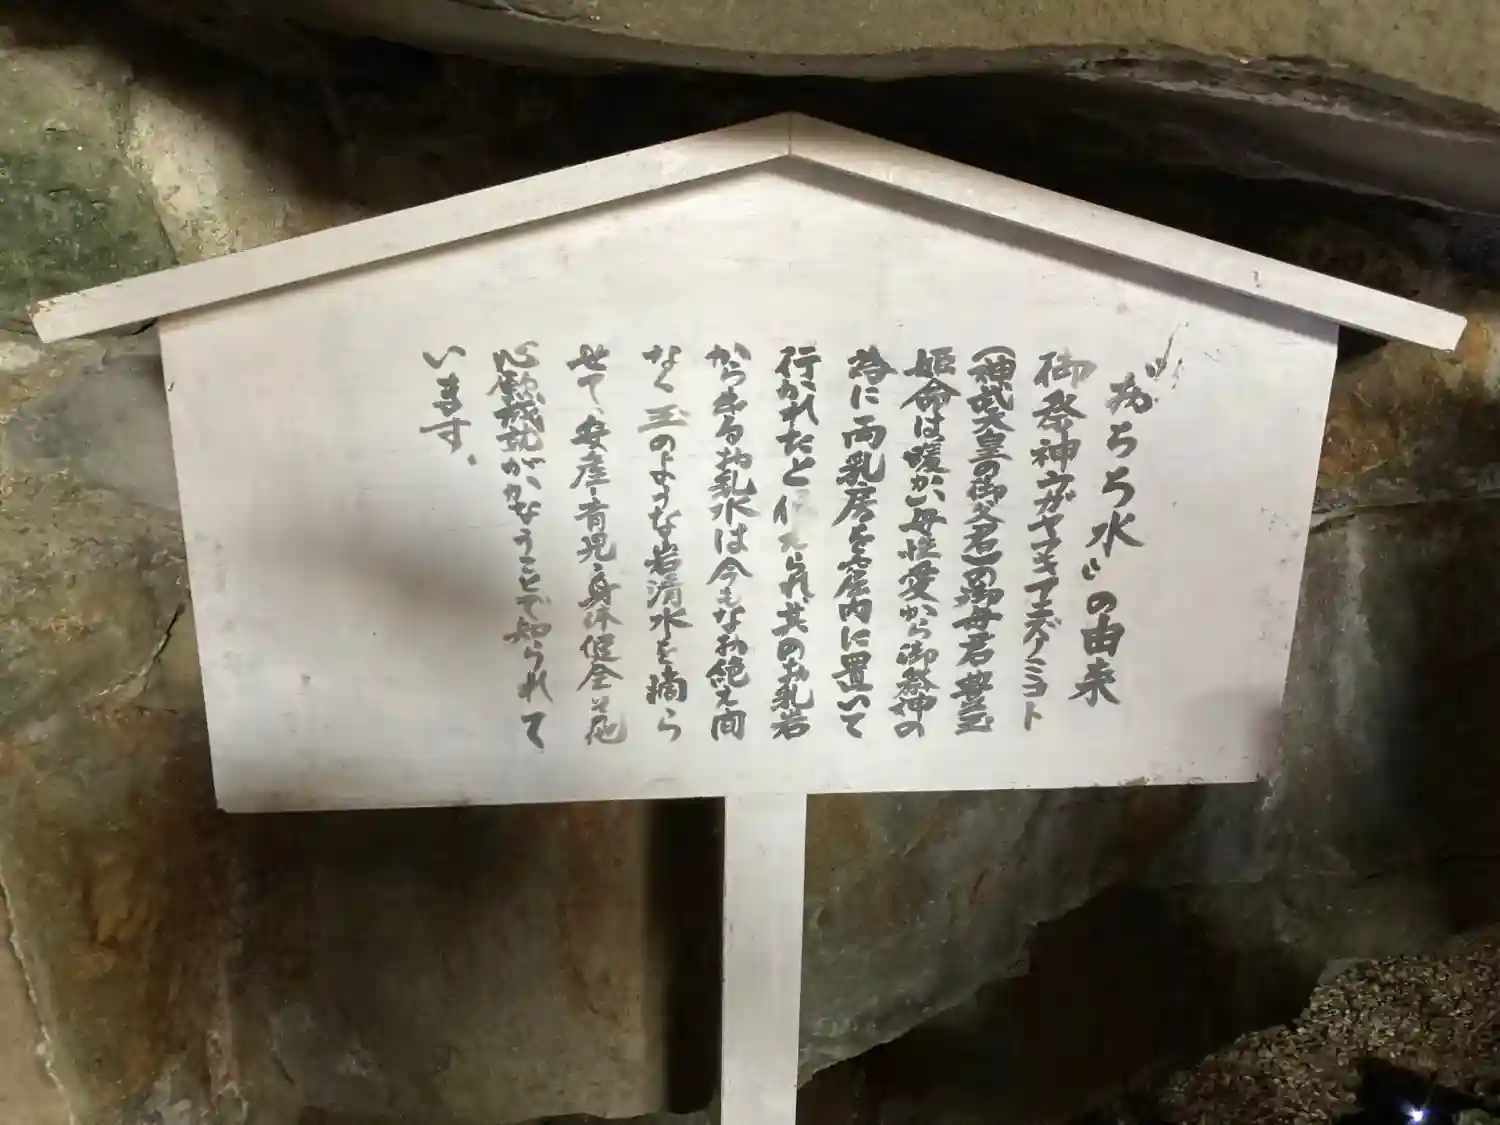 “おちち水”の由来
御祭神ウガヤフキアエズノミコト
(神武天皇の御父君)の御母君豊玉
姫命は暖かい母性愛から御祭神の
為に両乳房を窟内に置いて
行かれたと伝えられ、其のお乳岩
から出るお乳水は今もなお絶え間
なく玉のような岩清水を摘ら
せて、安産・育児・身体健全其他
心願成就がかなうことで知られて
います。